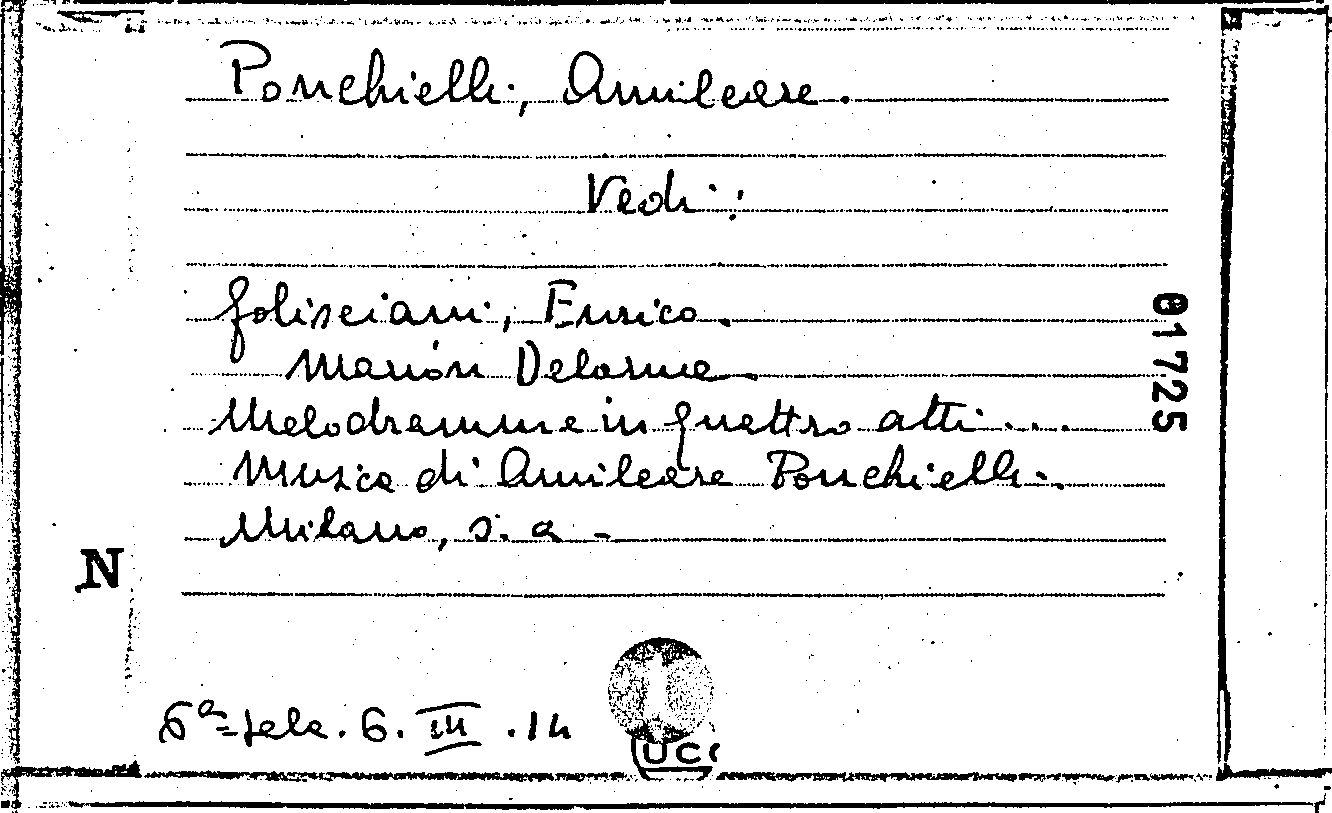 Ponchielli, Amilcare.
Vedi:
Golisciani, Enrico.
Marión Delorme.
Melodramma in quattro atti...
Musica di Amilcare Ponchielli.
Milano, s. a -
N
01725
6ª= sala. 6. III .14
UCC